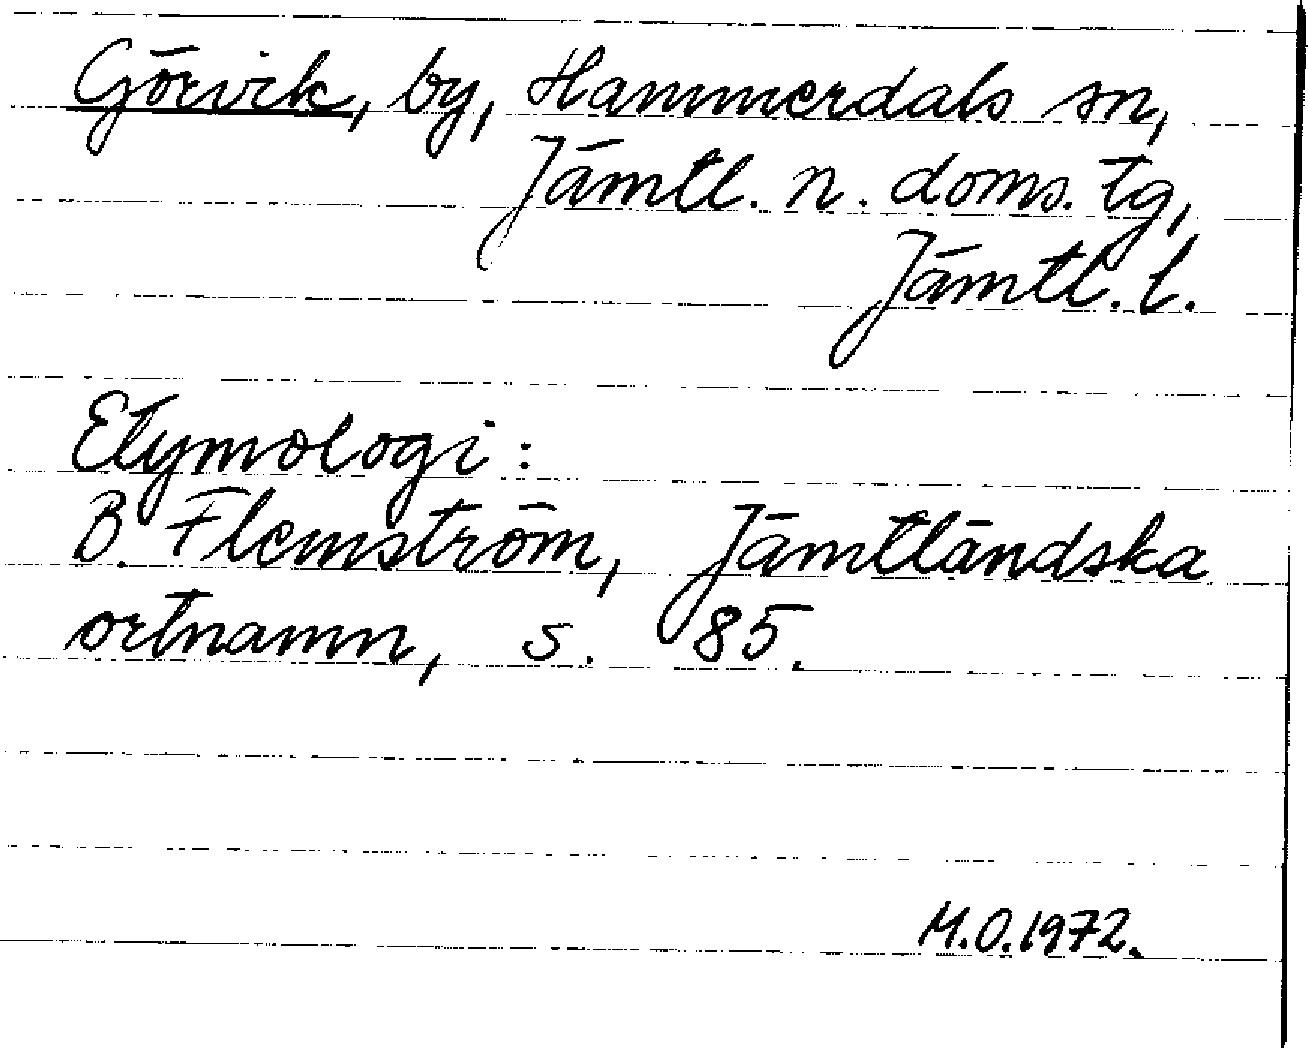 Görvik, by, Hammerdals sn,
Jämtl. n. doms. tg,
Jämtl. l.
Etymologi:
B. Flemström, Jämtländska
ortnamn, s. 85.
M.O.1972.